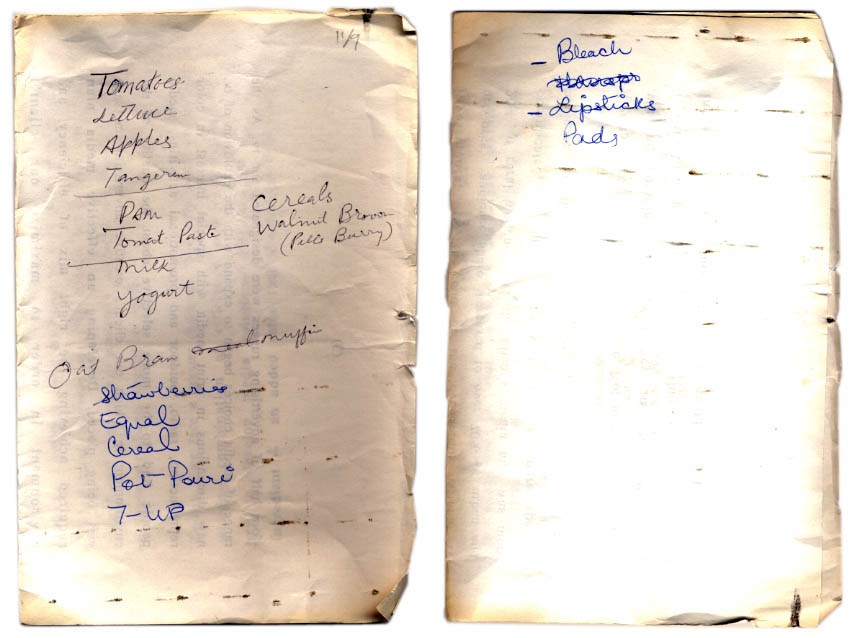 11/9
Tomatoes
Lettuce
Apples
Tangerin
PAM
Tomat Paste
Cereals
Walnut Brown
(Pills Burry)
Milk
Yogurt
Oat Bran meal muffi
Strawberries
Equal
Cereal
Pot-Pouri
7-UP
- Bleach
- Lipsticks
Pads